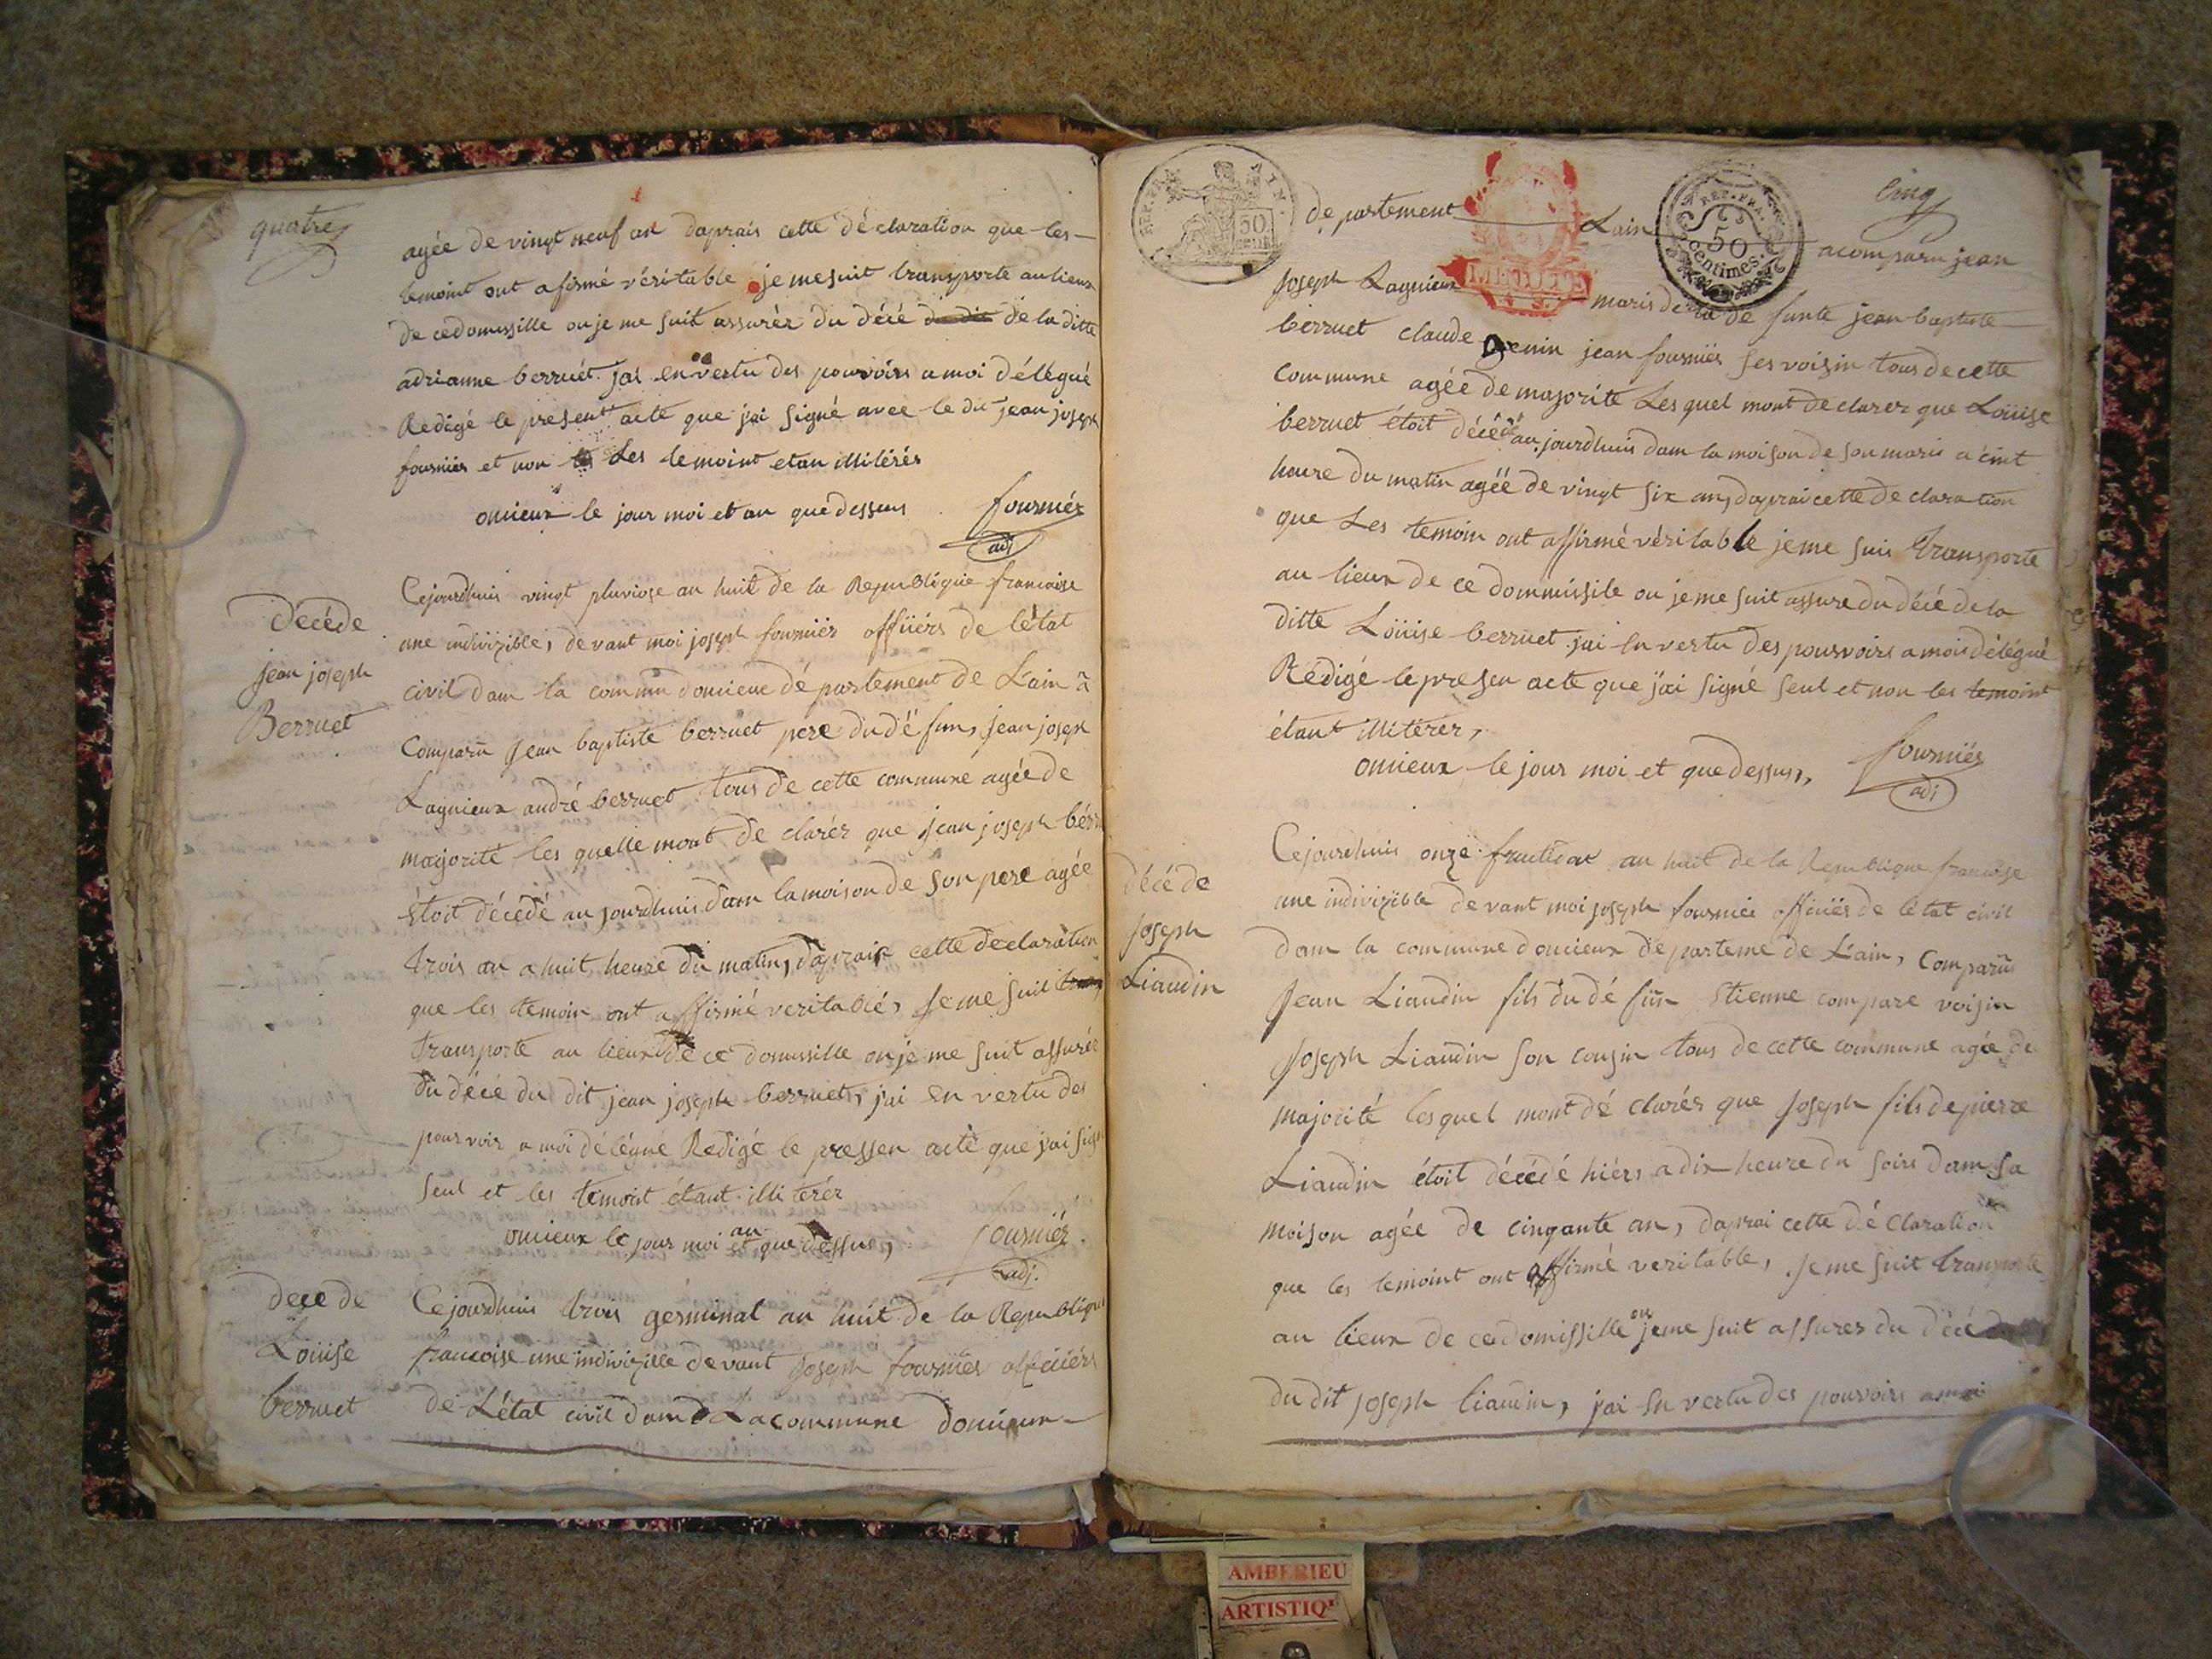 quatre
agée de vingt neuf an daprais cette déclaration que les
temoint ont afirmé véritable je me suit transporte au lieux
de ce domissille ou je me suit assurér du décé de la ditte
adrianne berruét jai en vertu des pouvoirs a moi délégué
Redigé le present acte que jai signé avec le dit jean joseph
fournier et non Les temoint etan illitérés
oncieux le jour moi et an que dessus
fourniér
adj
décéde
jean joseph
Berruet
Cejourdhuis vingt pluviose an huit de la Republique francoise
une indivizible, devant moi joseph fourniér officiérs de létat
civil dam la commu doncieux département de Lain à
Comparu Jean baptiste berruet pere du défun, jean joseph
Lagnieux andré berruet tous de cette commune agée de
majorité les quelle mont de clarér que jean joseph bérr
étoit décédé aujourdhuis dam la moison de son pere agée
trois an a huit heure du matin, daprais cette declaration
que les temoin ont affirmé veritable, Je me suit
transporte au lieux de ce domissille ou je me suit assurér
du décé du dit jean joseph berruet, jai en vertu des
pourvoir a moi délégué Redigé le pressen acte que jai sign
seul et les temoint étant illiterér
oncieux le jour moi an et que dessus,
fourniér
adj.
décéde
Louise
berruet
Cejourdhuis trois gérminal an huit de la Republique
francoise une indivizille devant Joseph fourniér officiérs
de Létat civil dam La commune doncieux
cinq
REP. FRA.
50
departement Lain acomparu jean
REP. FRA.
50
centimes.
joseph Lagnieux maris de la de funte jean baptiste
berruet claude genin jean fourniér ses voisin tous de cette
commune agée de majorite Les quel mont declarer que Loüise
berruet étoit décédé aujourdhuis dam la moison de son maris a cint
heure du matin agéé de vingt six an, daprai cette declaration
que Les temoin ont affirmé véritable je me suis transporte
au lieux de ce dommissile ou je me suit assure du décé de la
ditte Loüise berruet jai en vertu des pourvoirs a mois délégué
Rédigé le presen acte que jai signé seul et non les temoint
étant illitérer,
oncieux le jour moi et que dessus,
fourniér
adj
décéde
joseph
Liaudin
Cejourdhuis onze fructidor an huit de la Republique francoise
une indivizible devant moi joseph fourniér officiés de létat civil
dam la commune doncieux départeme de Lain, Comparu
Jean Liaudin fils du défun Etienne compare voisin
Joseph Liaudin son cousin tous de cette commune agée de
majorité lesquel mont dé clarér que Joseph fils de pierre
Liaudin étoit décédé hiérs a dix heure du soirs dam sa
moison agée de cinqante an, daprai cette dé claration
que les temoint ont affirmé veritable, je me suit transporte
au lieux de ce domissille ou je me suit assurer du décé
du dit joseph liaudin, jai en vertu des pouvoirs a moi
AMBERIEU
ARTISTIQ